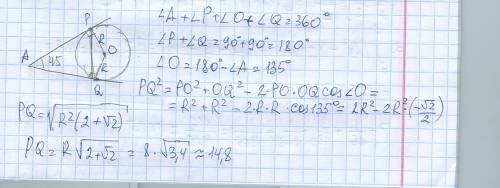 ∠A + ∠P + ∠O + ∠Q = 360°
∠P + ∠Q = 90° + 90° = 180°
∠O = 180° - ∠A = 135°
PQ² = PO² + OQ² - 2·PO·OQ cos∠O =
= R² + R² - 2·R·R·cos135° = 2R² - 2R²(-√2/2)
PQ = √(R²(2+√2))
PQ = R√(2+√2) = 8·√3,4 ≈ 14,8
P
R
O
A
45
R
Q